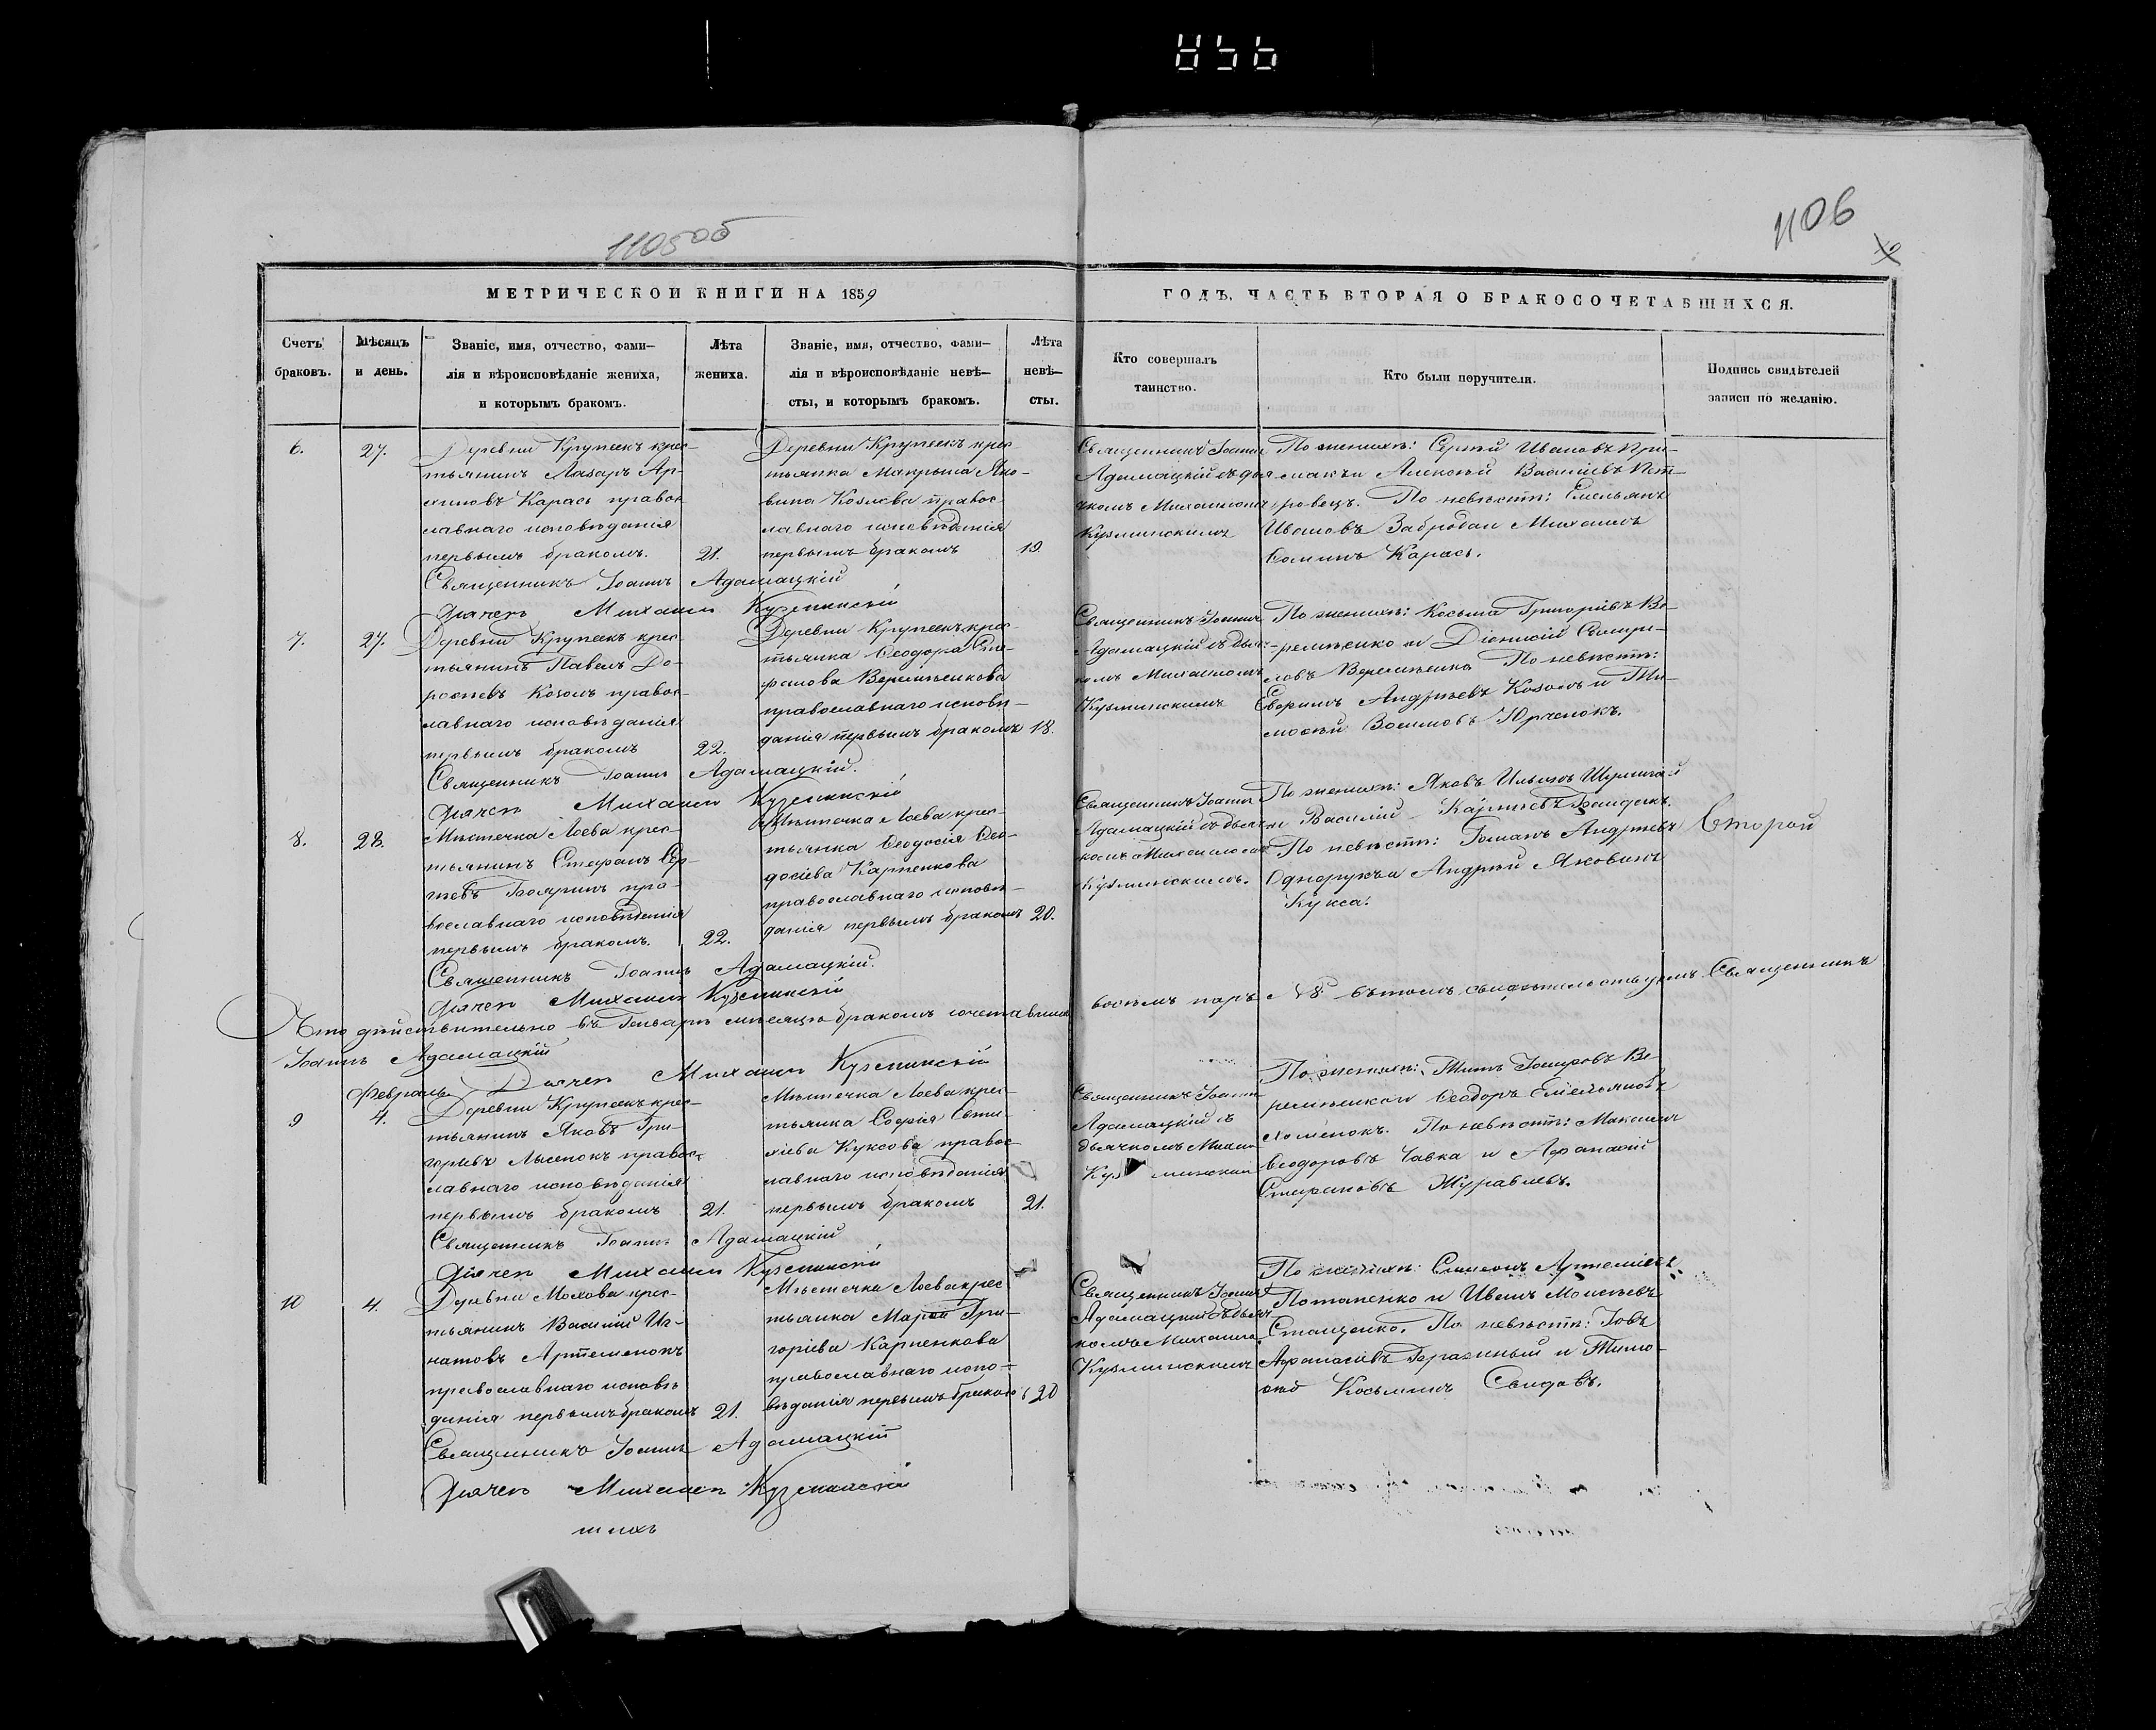 1105об
1106
МЕТРИЧЕСКОИ КНИГИ НА 1859
ГОДЪ, ЧАСТЬ ВТОРАЯ О БРАКОСОЧЕТАВШИХСЯ.
Счетъ
браковъ.
Мѣсяцъ
и день.
Званіе, имя, отчество, фами—
лія и вѣроисповѣданіе жениха,
и которымъ бракомъ.
Лѣта
жениха.
Званіе, имя, отчество, фами—
лія и вѣроисповѣданіе невѣ—
сты, и которымъ бракомъ.
Лѣта
невѣ—
сты.
Кто совершалъ
таинство.
Кто были поручители.
Подпись свидѣтелей
записи по желанію.
6.
27.
Деревни Крупеекъ крес-
тьянинъ Лазаръ Ар-
Карась правос-
лавнаго исповѣданія
первымъ бракомъ.
21.
Деревни Крупеекъ крес-
тьянка Макрына Яко-
влива Козлова правос-
лавнаго исповѣданія
первымъ бракомъ
19.
Священникъ Іоаннъ
Адамацкій съ дья-
чкомъ Михаиломъ
Кузминскимъ
По женихѣ: Сергѣй Ивановъ При-
макъ и Алексѣй Василіевъ Пет-
ровецъ. По невѣстѣ: Емельянъ
Ивановъ Забродан Михаилъ
Карась.
Священникъ Іоаннъ Адамацкій
Дячекъ Михаилъ Кузминскій
7.
27.
Деревни Крупеекъ крес-
тьянинъ Павелъ До-
рофеевъ Козолъ правос-
лавнаго исповѣданія
первымъ бракомъ
22.
Деревни Крупеекъ крес-
тьянка Ѳеодора Сте-
фанова Веремѣенкова
православнаго исповѣ-
данія первымъ бракомъ
18.
Священникъ Іоаннъ
Адамацкій съ дьяч-
комъ Михаиломъ
Кузминскимъ
По женихѣ: Косьма Григоріевъ Ве-
-ремѣенко и Діонисій
Веремѣенко По невѣстѣ:
Андрѣевъ Козолъ и Ти-
моѳей Юрченокъ.
Священникъ Іоаннъ Адамацкій.
Дячекъ Михаилъ Кузминскій
8.
28.
Мѣстечка Лоева крес-
тьянинъ Стефанъ Сер-
гѣевъ Бояринъ пра-
вославнаго исповѣданія
первымъ бракомъ.
22.
Мѣстечка Лоева крес-
тьянка Ѳеодосія Ѳео-
досіева Карпенкова
православнаго исповѣ-
данія первымъ бракомъ
20.
Священникъ Іоаннъ
Адамацкій съ дьяч-
комъ Михаиломъ
Кузминскимъ.
По женихѣ: Яковъ Ильинъ
и Василій
По невѣстѣ: Романъ Андрѣевъ
Однорукъ и Андрѣй Яковлевъ
Кукса.
Второй
Священникъ Іоаннъ Адамацкій.
Дячекъ Михаилъ Кузминскій
Что дѣйствительно въ Генварѣ мѣсяцѣ бракомъ сочетавших
восемь паръ №8 въ томъ свидѣтельствуемъ Священникъ
Іоаннъ Адамацкій
Дячекъ Михаилъ Кузминскій
Февраль
9
4.
Деревни Крупеекъ крес-
тьянинъ Яковъ Гри-
горіевъ Лысенокъ правос-
лавнаго исповѣданія
первымъ бракомъ
21.
Мѣстечка Лоева крес-
тьянка Софія
Куксова правос-
лавнаго исповѣданія
первымъ бракомъ
21.
Священникъ Іоаннъ
Адамацкій съ
дьячкомъ
По женихѣ: Титъ Ве-
ремѣенко и Ѳеодоръ Емельяновъ
Хоменокъ. По невѣстѣ: Максимъ
Ѳеодоровъ Чавка и Афанасій
Стефановъ Журавлевъ.
Священникъ Іоаннъ Адамацкій
Дячекъ Михаилъ Кузминскій
10
4.
Деревни Мохова крес-
тьянинъ Василій Иг-
натовъ Артеменокъ
православнаго исповѣ
данія первымъ бракомъ
21.
Мѣстечка Лоева крес
тьянка Марѳа Гри-
горіева Карпенкова
православнаго испо-
вѣданія первымъ бракомъ
20
Священникъ Іоаннъ
Адамацкій съ дьяч
комъ Михаило
Кузминскимъ
По женихѣ: Симеонъ Артеміевъ
Потапенко и Иванъ Моисѣевъ
Стащенко. По невѣстѣ: Іовъ
Афанасіевъ и Тимо-
ѳей Косьминъ Свидовъ.
Священникъ Іоаннъ Адамацкій
Дячекъ Михаилъ Кузминскій